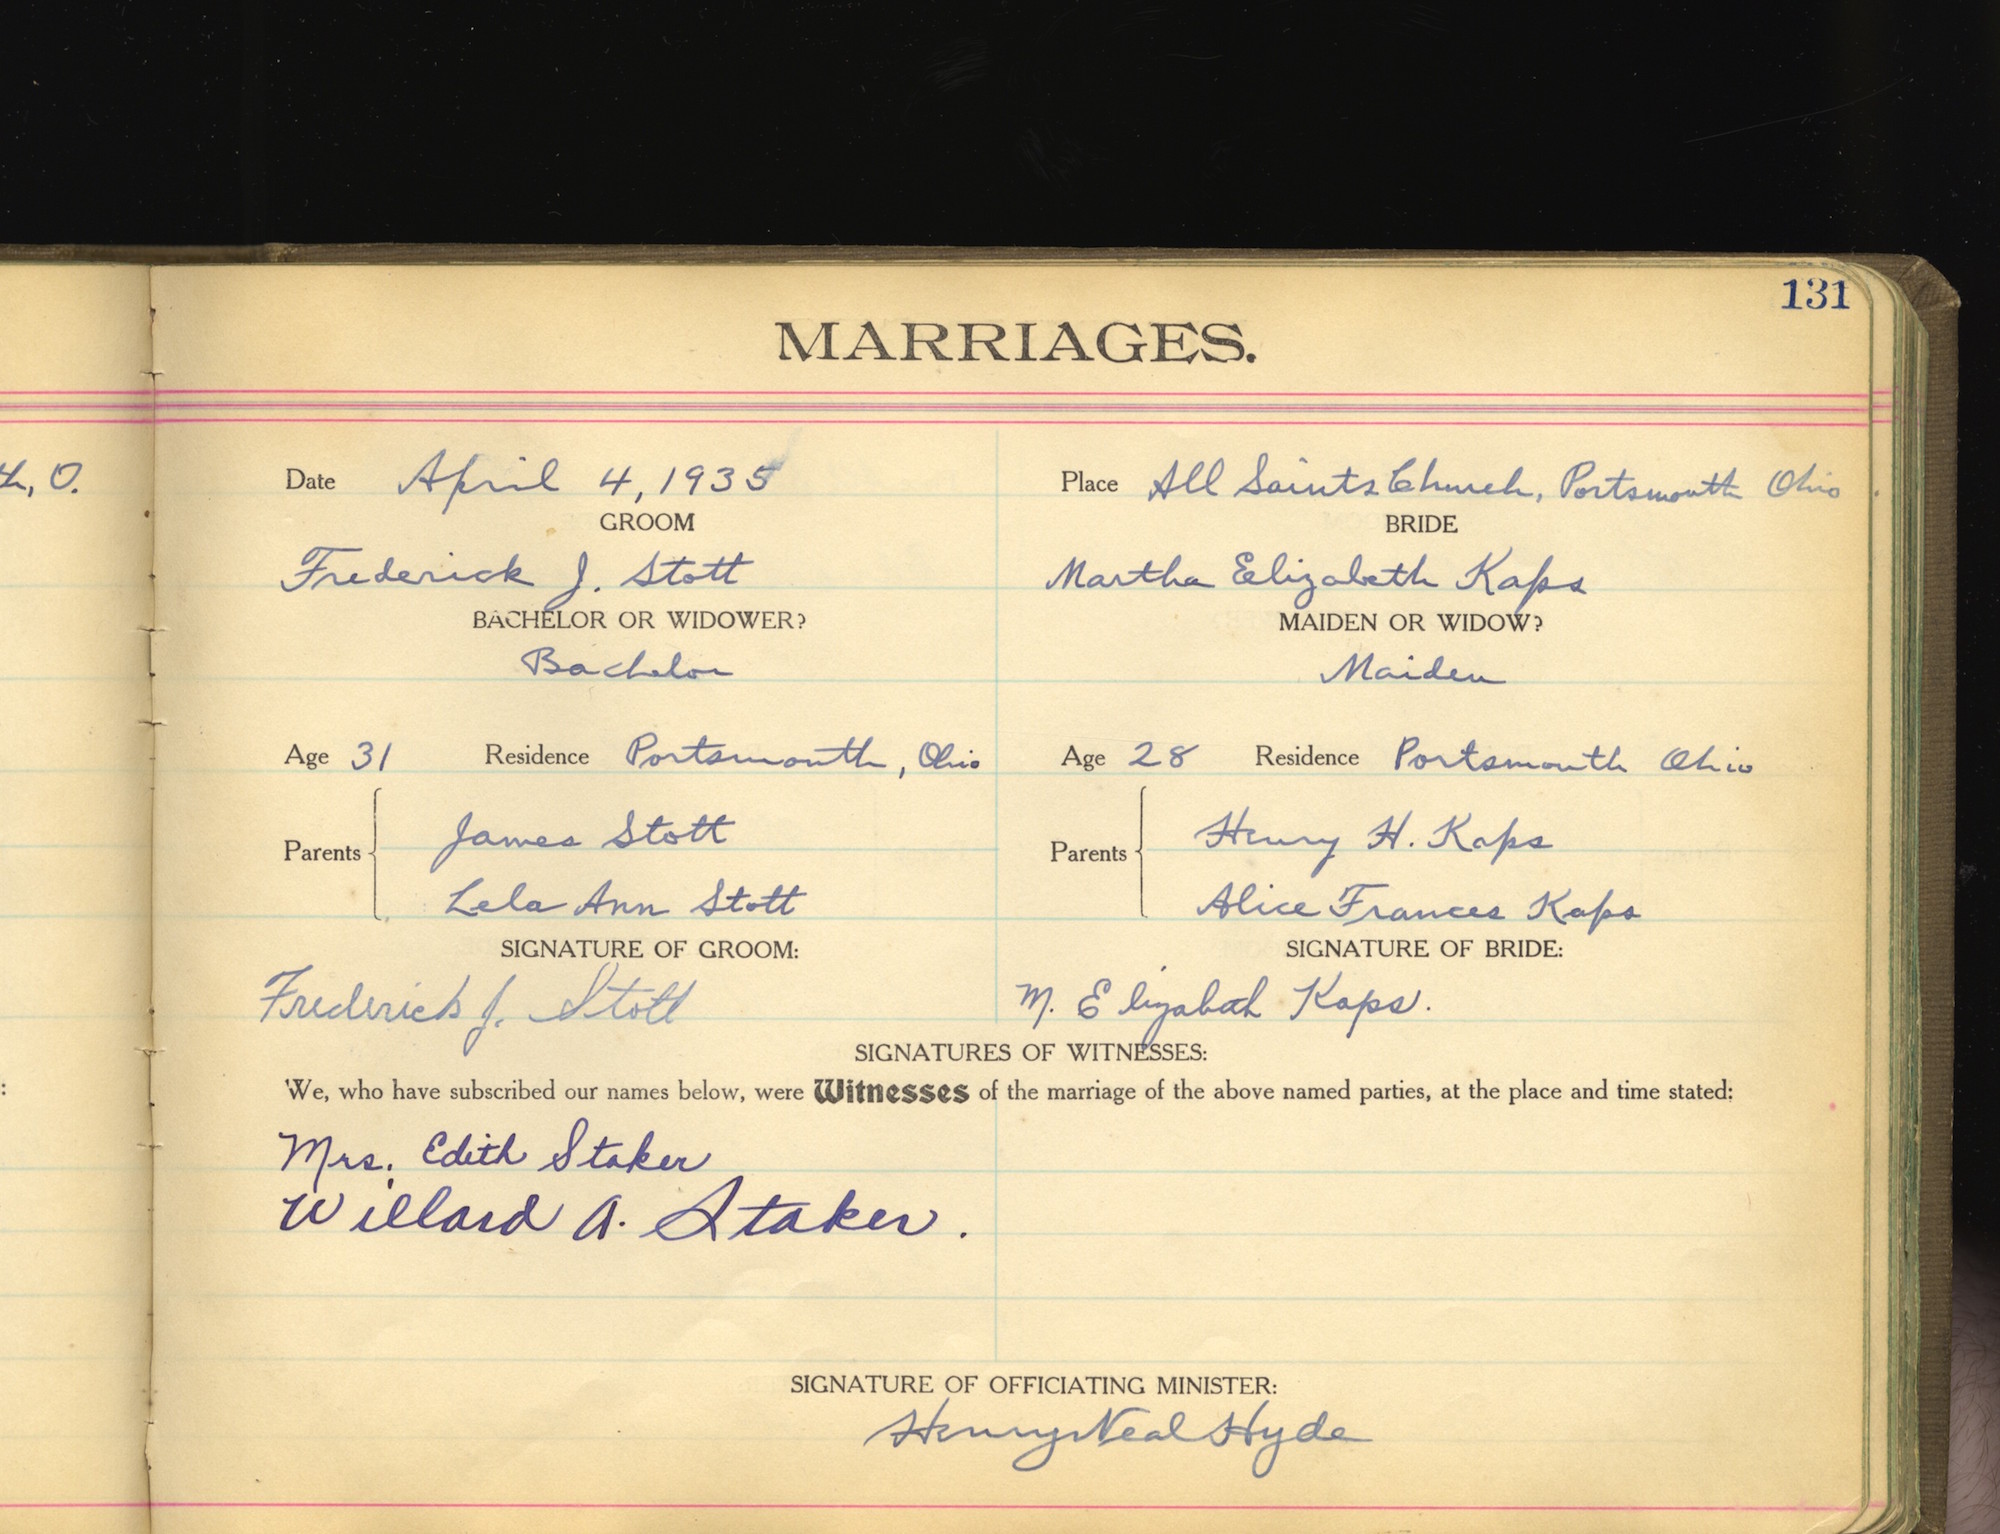 131
MARRIAGES.
th, O.
Date April 4, 1935 Place All Saints Church, Portsmouth Ohio.
GROOM BRIDE
Frederick J. Stott Martha Elizabeth Kaps
BACHELOR OR WIDOWER? MAIDEN OR WIDOW?
Bachelor Maiden
Age 31 Residence Portsmouth, Ohio Age 28 Residence Portsmouth Ohio
James Stott Henry H. Kaps
Parents Parents
Lela Ann Stott Alice Frances Kaps
SIGNATURE OF GROOM: SIGNATURE OF BRIDE:
Frederick J. Stott M. Elizabeth Kaps.
SIGNATURES OF WITNESSES:
: We, who have subscribed our names below, were Witnesses of the marriage of the above named parties, at the place and time stated:
Mrs. Edith Staker
Willard A. Staker.
SIGNATURE OF OFFICIATING MINISTER:
Henry Neal Hyde